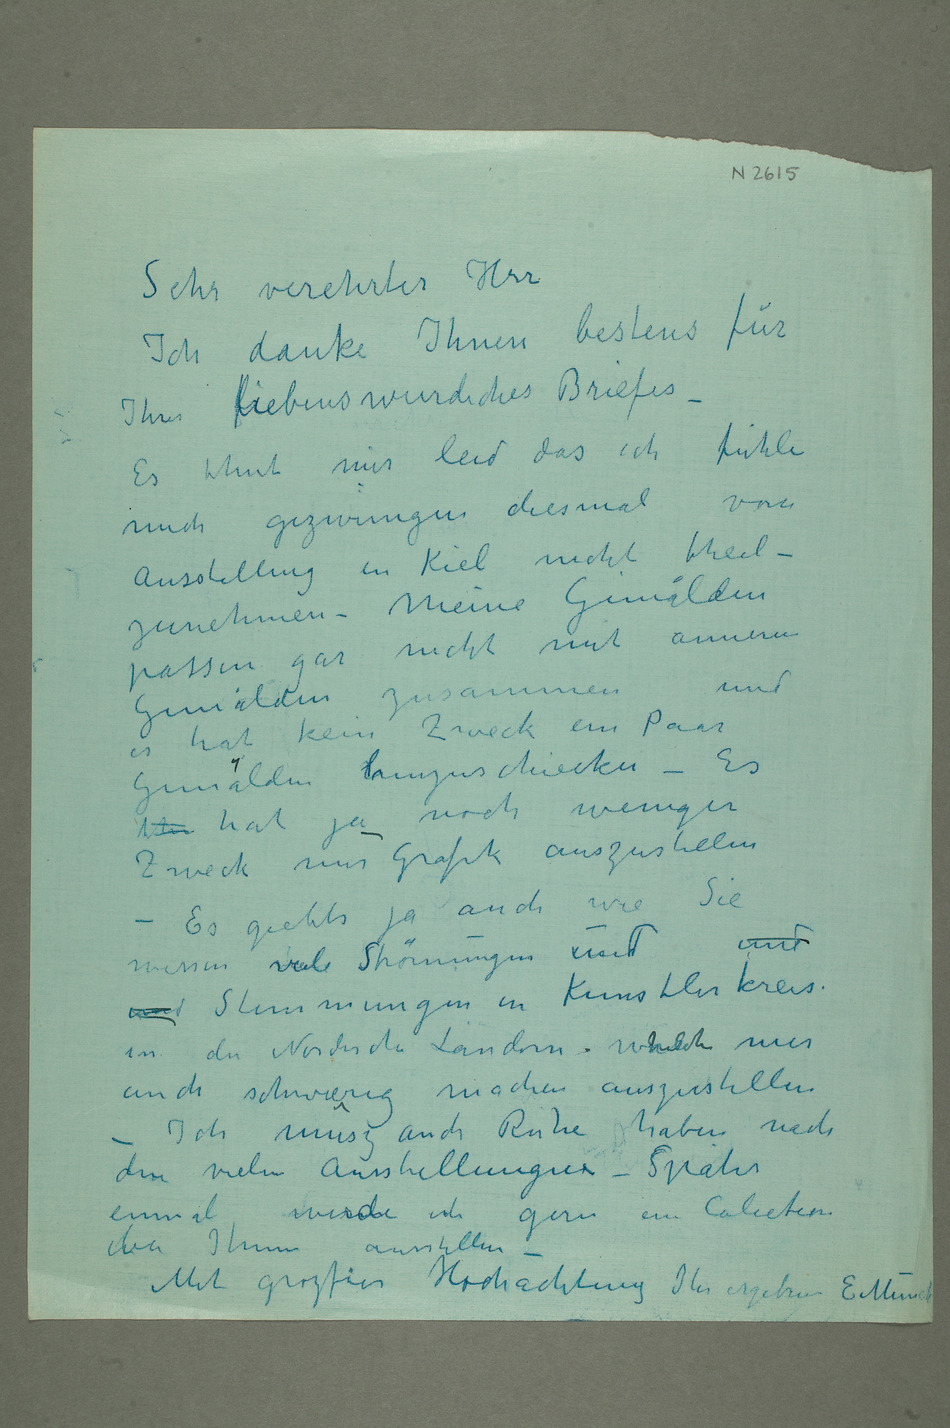 N 2615
Sehr verehrter Herr
Ich danke Ihnen bestens für
Ihres liebenswurdiches Briefes –
Es thut mir leid das ich fühle
mich gezwungen diesmal von
Ausstellung in Kiel nicht theil–
zunehmen – Meine Gemälden
passen gar nicht mit anneren
Gemälden zusammen und
es hat kein Zweck ein Paar
Gemälden hinzuschiecken – Es
hat ja noch weniger
Zweck nur Grafik auszustellen
– Es giebts ja auch wie Sie
wissen viele Strömungen und und
und Stimmungen in Kunstlerkreis.
in die Nordische Ländern. welche mir
auch schwierig machen auszustellen
– Ich müsz auch Ruhe haben nach
den vielen Ausstellungen – Später
einmal werde ich gern ein Colection
bei Ihnen ausstellen –
Mit grozser Hochachtung Ihr ergebener E Munch